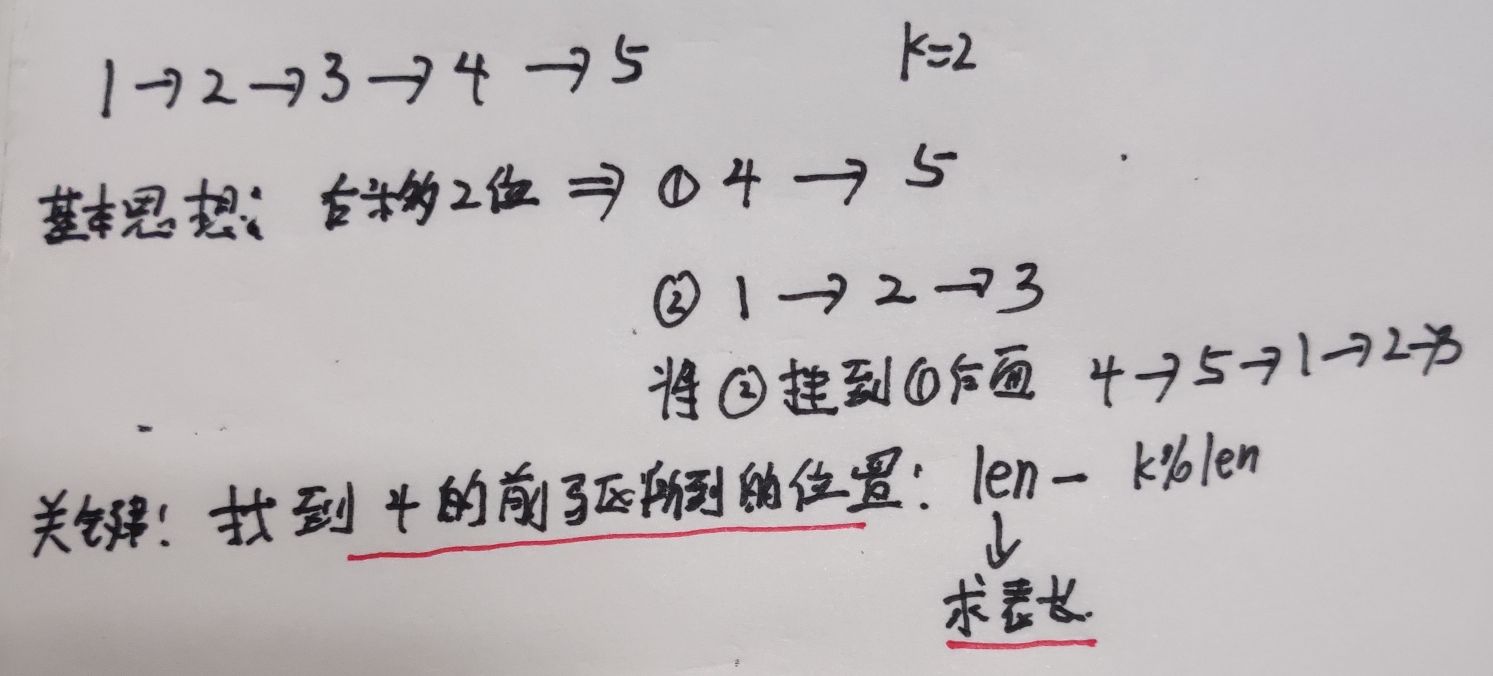 1→2→3→4→5 k=2
基本思想: 右半的2位 ⇒ ① 4 → 5
② 1 → 2 → 3
将②挂到①后面 4→5→1→2→3
关键: 找到4的前驱所到的位置: len - k%len
↓
求表长.